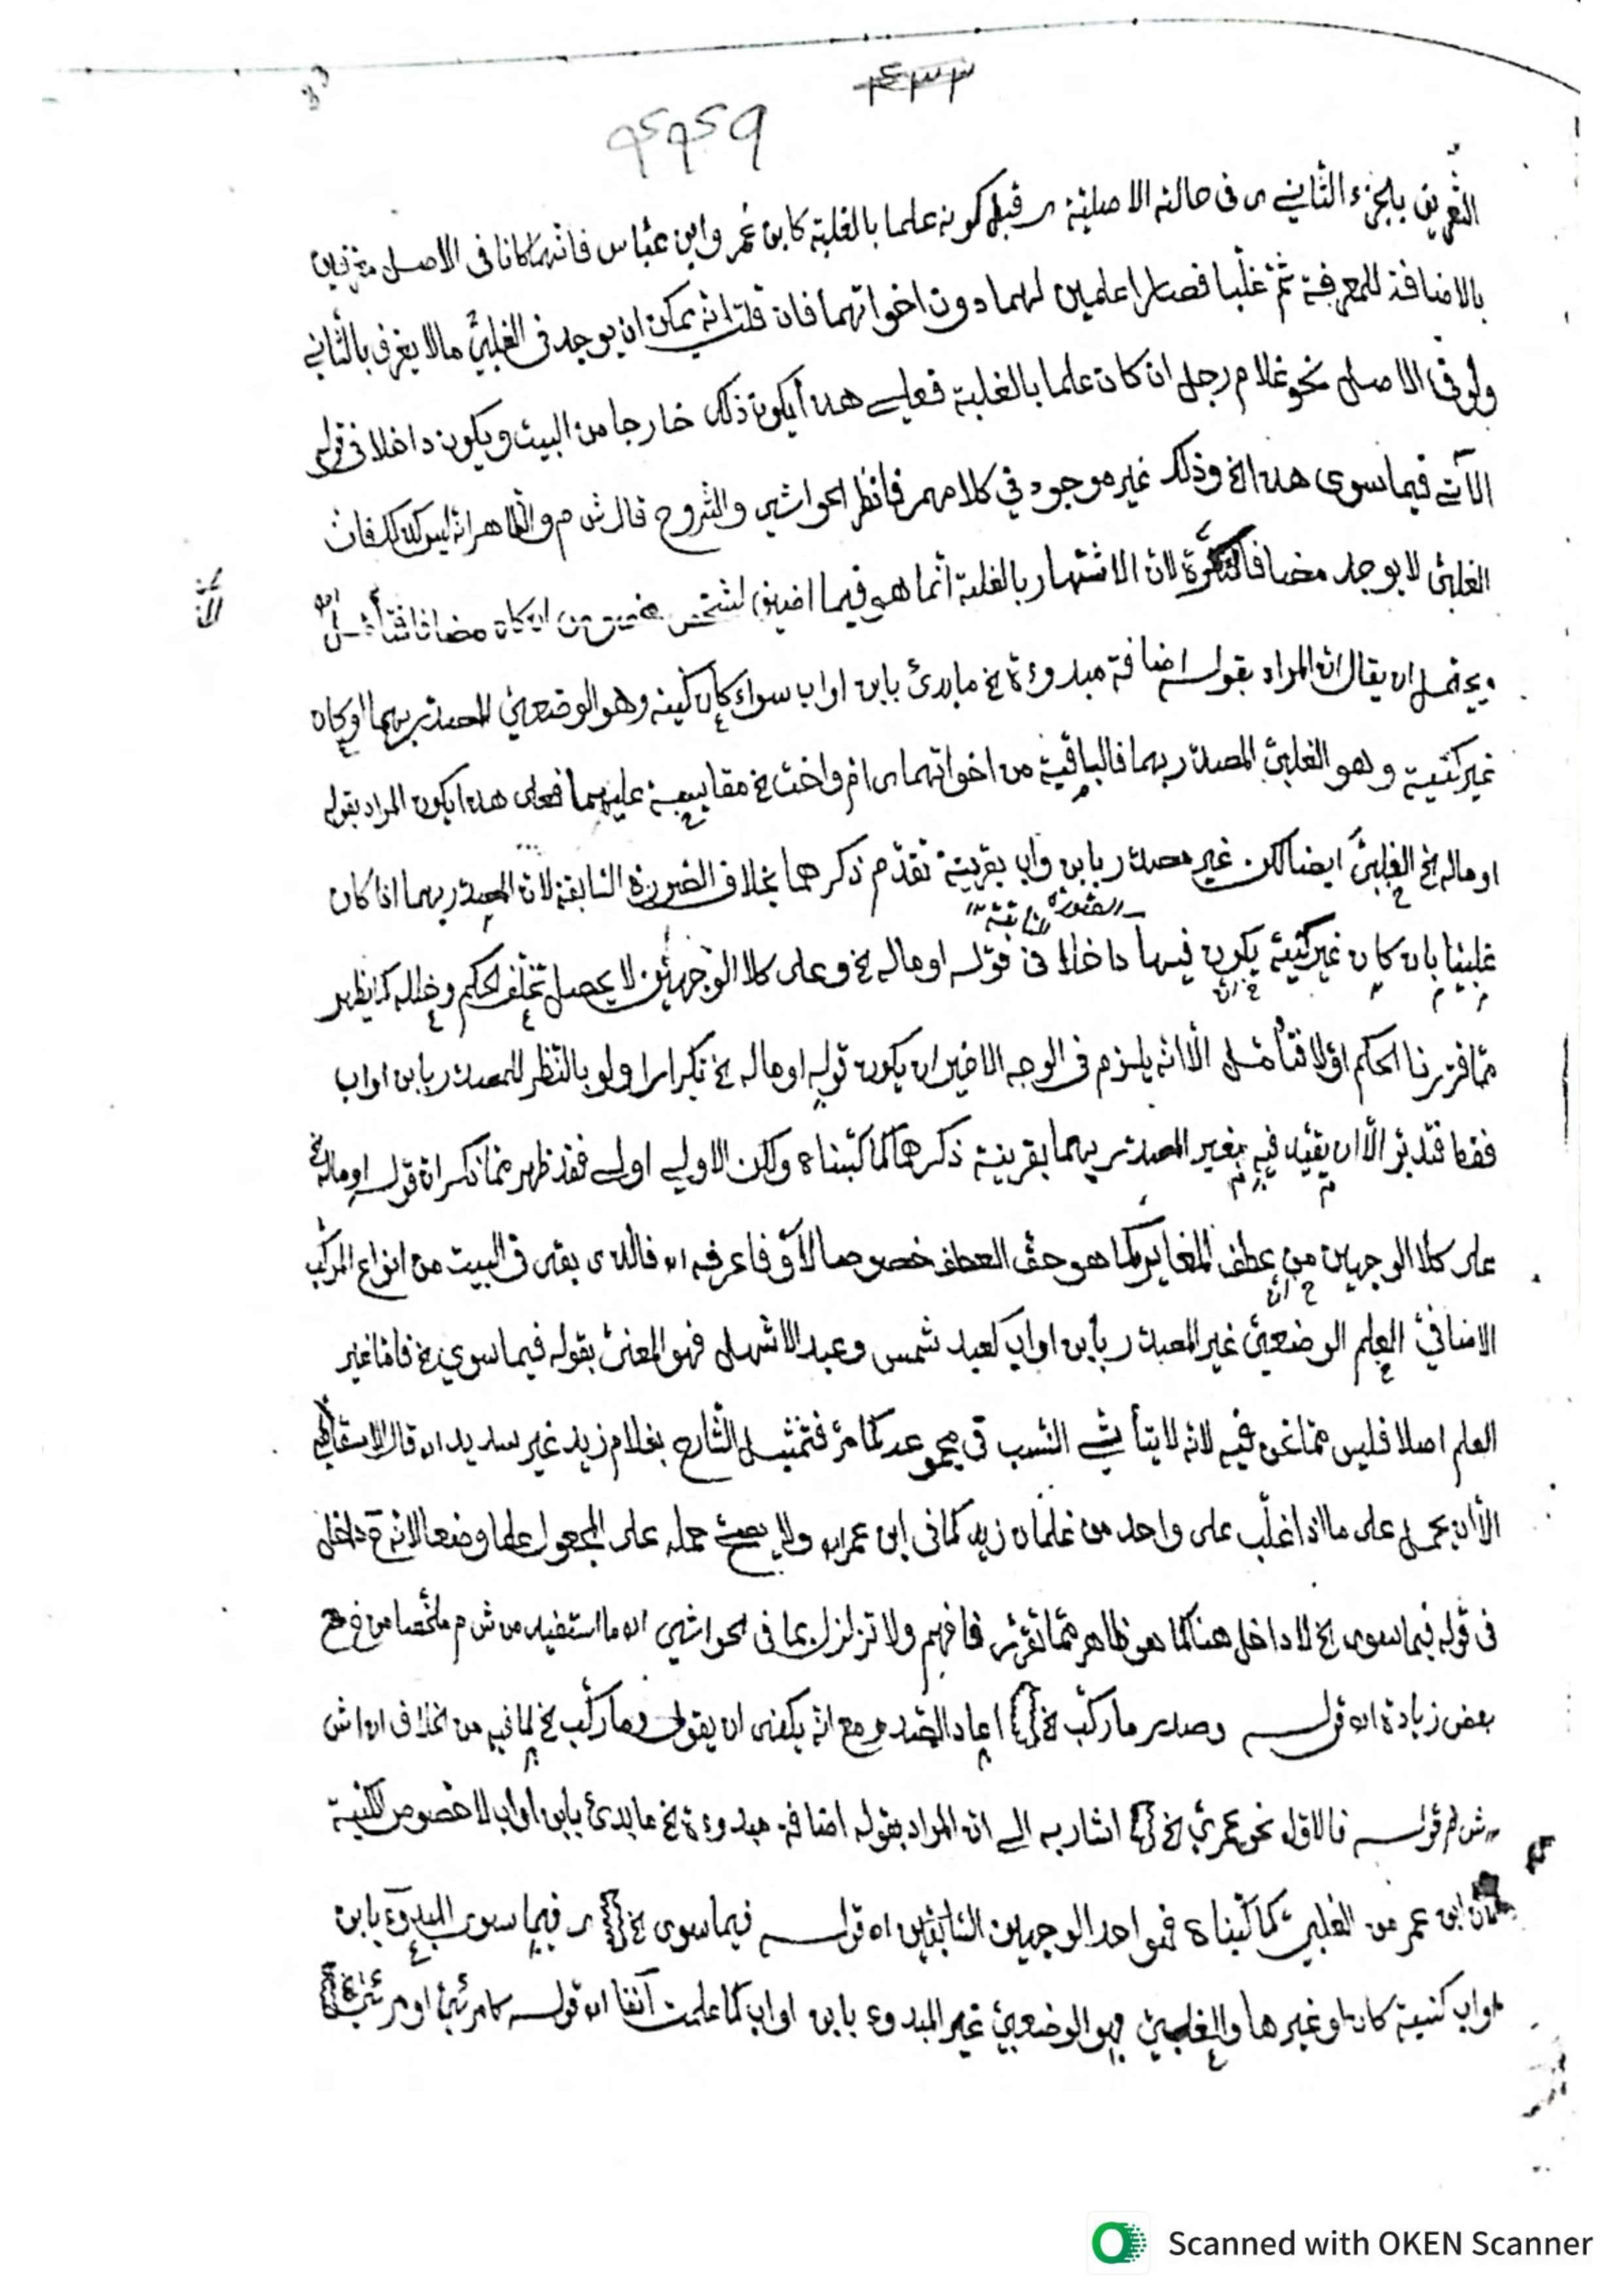 ٤٣٣
٩٤٩٤٩
التعريف بالجزء الثاني ى فى حالته الاصلية ى قبل كونه علما بالغلبة كابن عمر وابن عباس فانهما كانا فى الاصل متعرفين
بالاضافة للمعرفة ثم غلبا فصارا علمين لهما دون اخواتهما فان قلت انه يمكن ان يوجد فى الغلبيّ مالا يعرف بالثاني
ولو فى الاصل نحو غلام رجل ان كان علما بالغلبة فعلى هذا يكون ذلك خارجا من البيت ويكون داخلا فى قوله
الآتى فيما سوى هذا الخ وذلك غير موجود في كلامهم فانظر الحواشي والشروح قال ش م والظاهر انه ليس كذلك فان
الغلبيّ لا يوجد مضافا لنكرة لان الاشتهار بالغلبة انما هو فيما اضيف لشخص ان كان مضافا فتأمل اه
ويحتمل ان يقال ان المراد بقوله اضافة مبدوءة خ ما بدئ بابن او اب سواء كان كنية وهو الوضعيّ المصدّر بهما او كان
غير كنية وهو الغلبيّ المصدّر بهما فالباقية من اخواتهما ى ام واخت خ مقايسة عليهما فعلى هذا يكون المراد بقوله
او ماله خ الغلبيّ ايضا لكن غير مصدّر بابن واب بقرينة تقدّم ذكرهما بخلاف الصورة السابقة لان المصدّر بهما اذا كان
الصورة السابقة
غلبيّا بان كان غير كنية يكون فيها داخلا فى قوله او ماله خ وعلى كلا الوجهين لا يحصل تخلّف الحكم وخلله كما يظهر
ممّا قررنا الحكم اوّلا فتأمّل الّا انه يلزم فى الوجه الاخير ان يكون قوله او ماله خ تكرارا ولو بالنّظر للمصدّر بابن او اب
فقط فتدبّر الّا ان يقيّد فيه بغير المصدّر بهما بقرينة ذكرهما كما كتبناه ولكن الاولى اولى فقد ظهر ممّا ذكر ان قوله او ماله خ
على كلا الوجهين من عطف المغاير كما هو حقّ العطف خصوصا لاو فاعرفه اه فالذى بقى فى البيت من انواع المركّب
الاضافيّ العلم الوضعيّ غير المصدّر بابن او اب كعبد شمس وعبد الاشهل فهو المعنىّ بقوله فيما سوى خ فامّا غير
العلم اصلا فليس ممّا نحن فيه لانه لا يتأتى النسب فى مجموعه كما مرّ فتمثيل الشارح بغلام زيد غير سديد اه قال الاسقاطي
الّا ان يحمل على ما اذا غلّب على واحد من غلمان زيد كما فى ابن عمر اه ولا يصح حمله على المجعول علما وضعا لانه ح داخل
فى قوله فيما سوى خ لا داخل هنا كما هو ظاهر ممّا تقرّر فافهم ولا تزلزل بما فى الحواشي اه ما استفيد من ش م ملخّصا من مع
بعض زيادة اه قوله وصدر ما ركّب خ اعاد الصدر مع انه يكفى ان يقول وما ركّب خ لما فيه من الخلاف اه اش
ش م قوله فالاوّل نحو عمريّ خ اشار به الى ان المراد بقوله اضافة مبدوءة خ ما بدئ بابن او اب لا خصوص الكنية
لان ابن عمر من الغلبيّ كما كتبناه فى احد الوجهين السابقين اه قوله فيما سوى خ ى فيما سوى المبدوّ بابن
او اب كنية كان او غيرها والغلبيّ فهو الوضعيّ غير المبدوء بابن او اب كما علمت آنفا اه قوله كامرئيّ او مرئيّ
Scanned with OKEN Scanner